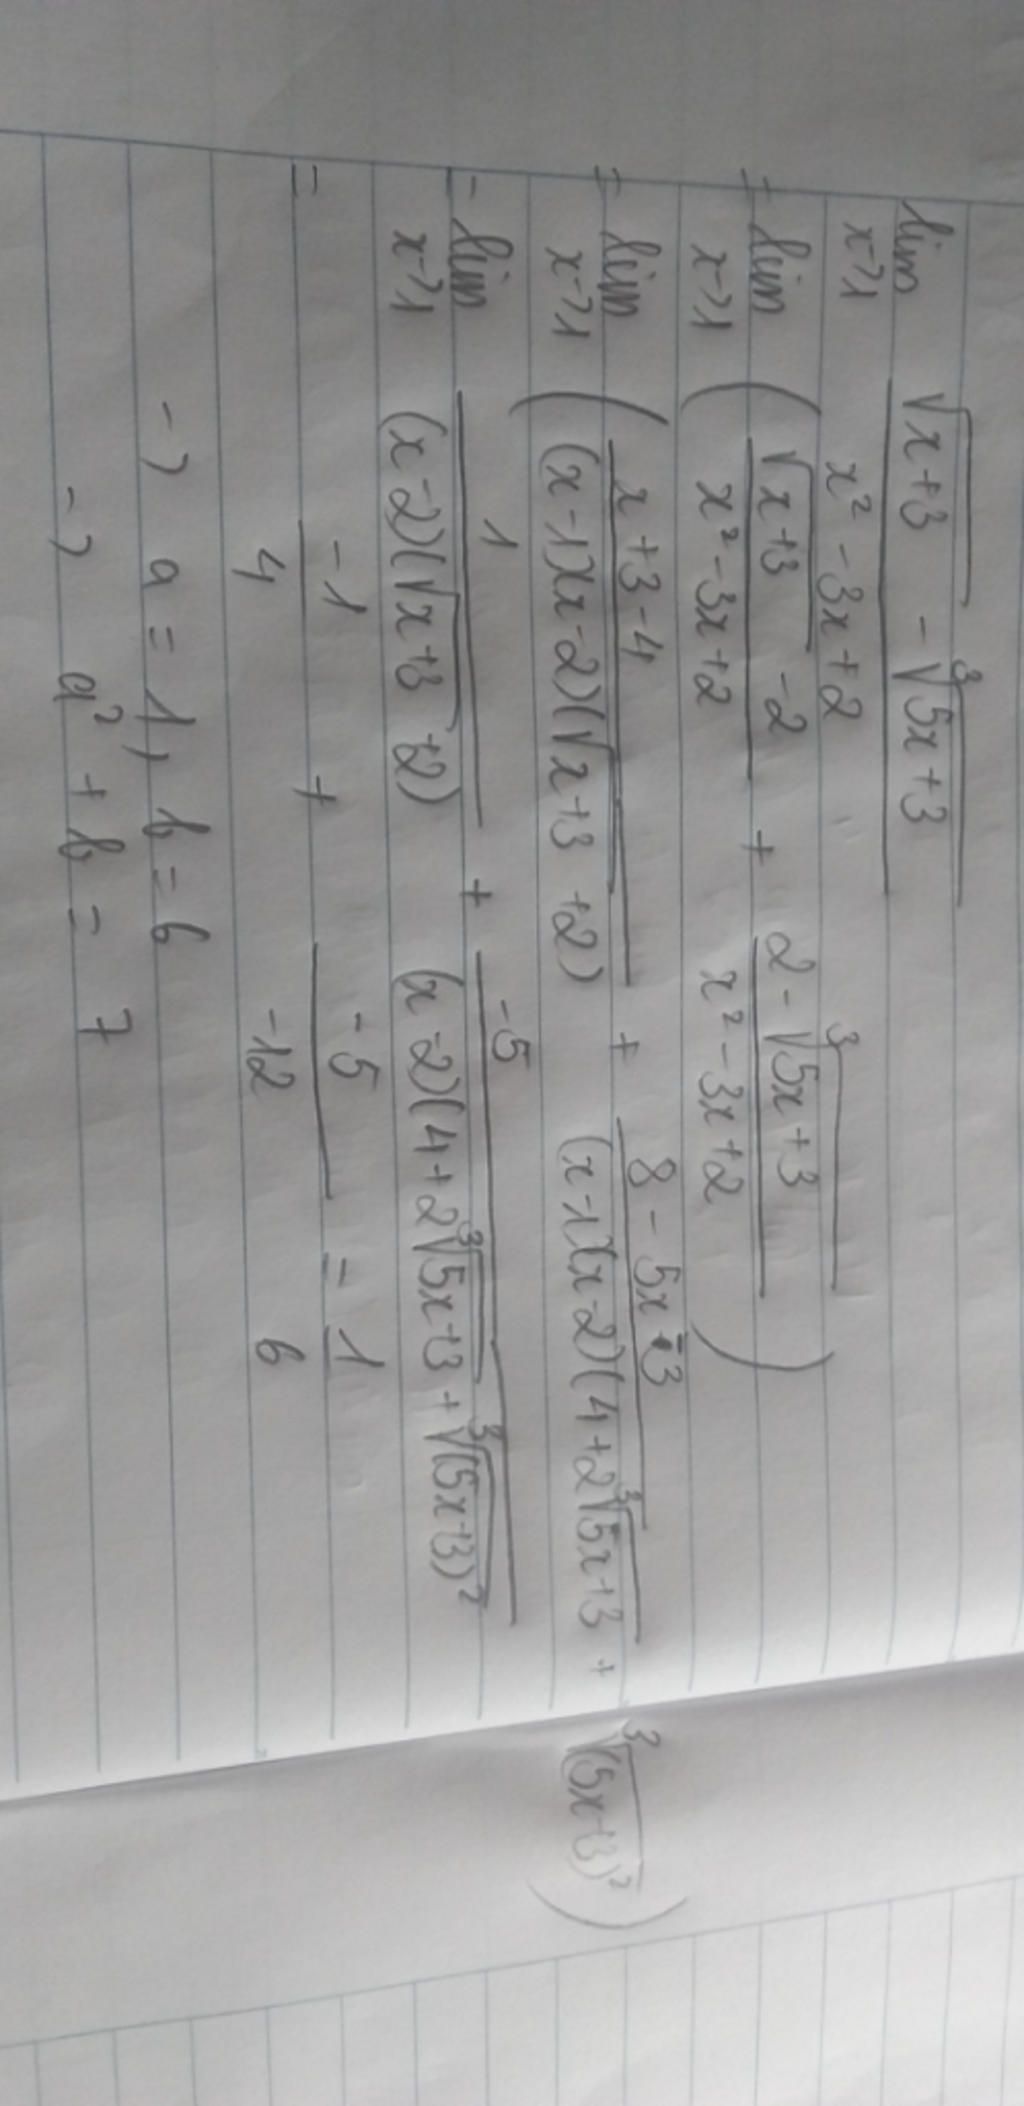 lim x→1 (√(x+3) - ∛(5x+3)) / (x² - 3x + 2)
= lim x→1 ( (√(x+3) - 2) / (x² - 3x + 2) + (2 - ∛(5x+3)) / (x² - 3x + 2) )
= lim x→1 ( (x+3-4) / ((x-1)(x-2)(√(x+3) + 2)) + (8 - 5x - 3) / ((x-1)(x-2)(4 + 2∛(5x+3) + ∛(5x+3)²)) )
= lim x→1 1 / ((x-2)(√(x+3) + 2)) + -5 / ((x-2)(4 + 2∛(5x+3) + ∛(5x+3)²
= -1/4 + -5/-12 = 1/6
-> a = 1, b = 6
-> a² + b = 7